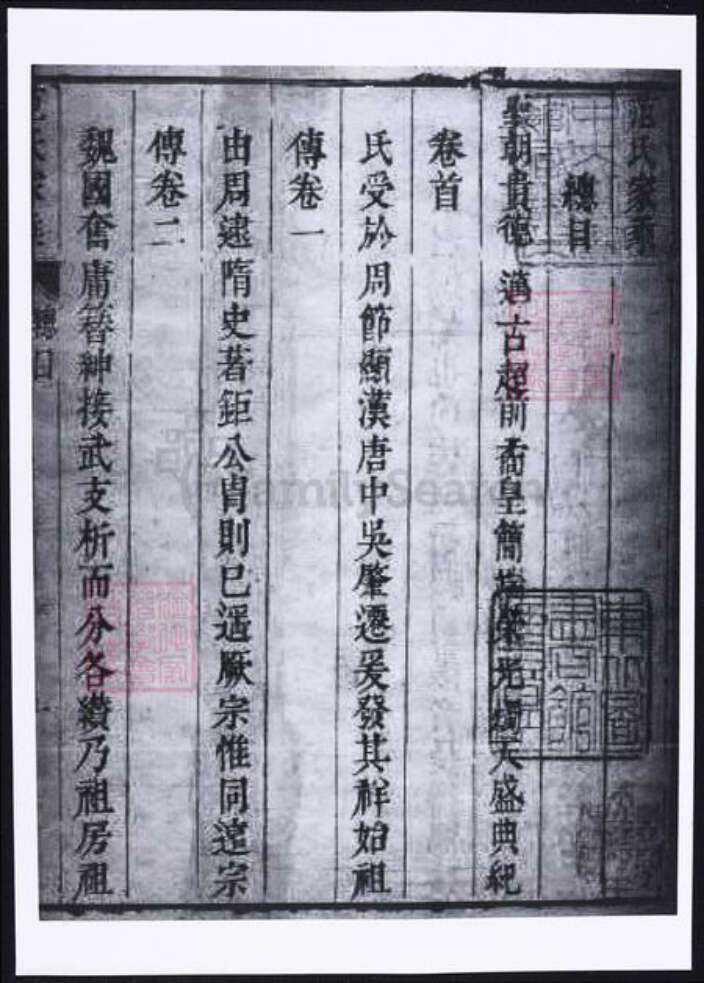 范氏家乘
總目
聖朝貴德 邁古超前 裔皇簡 榮光燭天盛典紀
卷首
氏受於周節顯漢唐中吳肇遷爰發其祥始祖
傳卷一
由周逮隋史著鉅公胄則已遥厥宗惟同遠宗
傳卷二
魏國奮庸簪紳接武支析而分各纘乃祖房祖
總目
FamilySearch